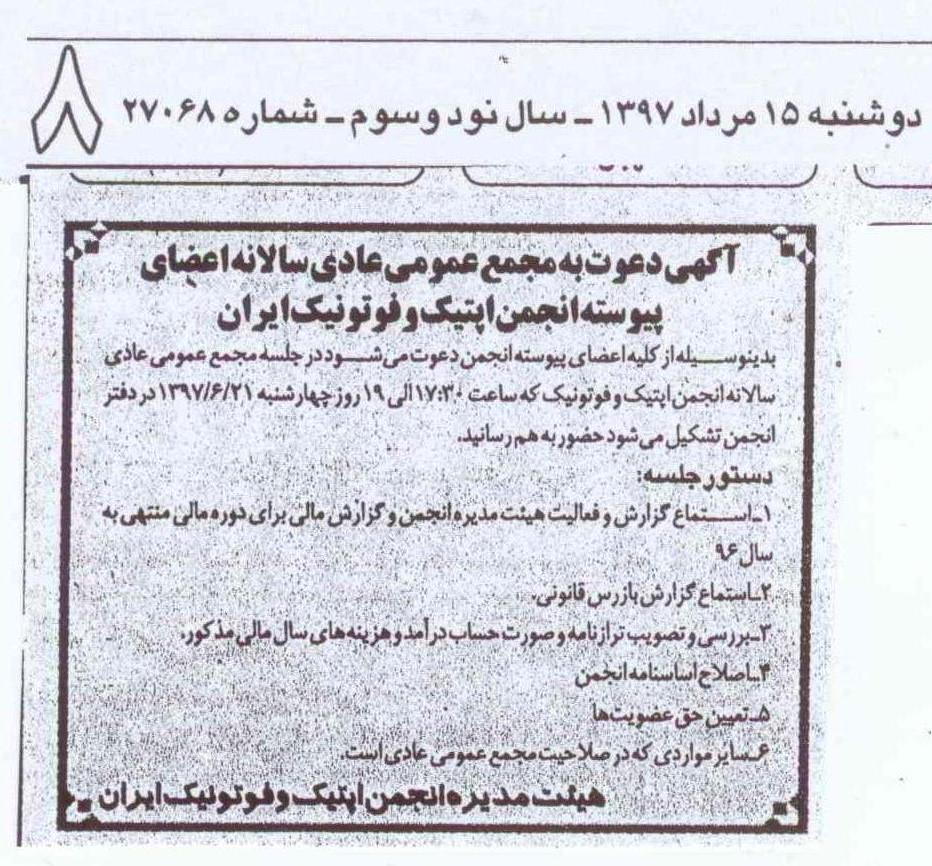 دوشنبه ۱۵ مرداد ۱۳۹۷ ـ سال نود و سوم ـ شماره ۲۷۰۶۸
۸
آگهی دعوت به مجمع عمومی عادی سالانه اعضای
پیوسته انجمن اپتیک و فوتونیک ایران
بدینوسیله از کلیه اعضای پیوسته انجمن دعوت می‌شود در جلسه مجمع عمومی عادی
سالانه انجمن اپتیک و فوتونیک که ساعت ۱۷:۳۰ الی ۱۹ روز چهارشنبه ۱۳۹۷/۶/۲۱ در دفتر
انجمن تشکیل می‌شود حضور به هم رسانید.
دستور جلسه:
۱ـ استماع گزارش و فعالیت هیئت مدیره انجمن و گزارش مالی برای دوره مالی منتهی به
سال ۹۶
۲ـ استماع گزارش بازرس قانونی.
۳ـ بررسی و تصویب ترازنامه و صورت حساب درآمد و هزینه‌های سال مالی مذکور.
۴ـ اصلاح اساسنامه انجمن
۵ـ تعیین حق عضویت‌ها
۶ـ سایر مواردی که در صلاحیت مجمع عمومی عادی است.
هیئت مدیره انجمن اپتیک و فوتونیک ایران